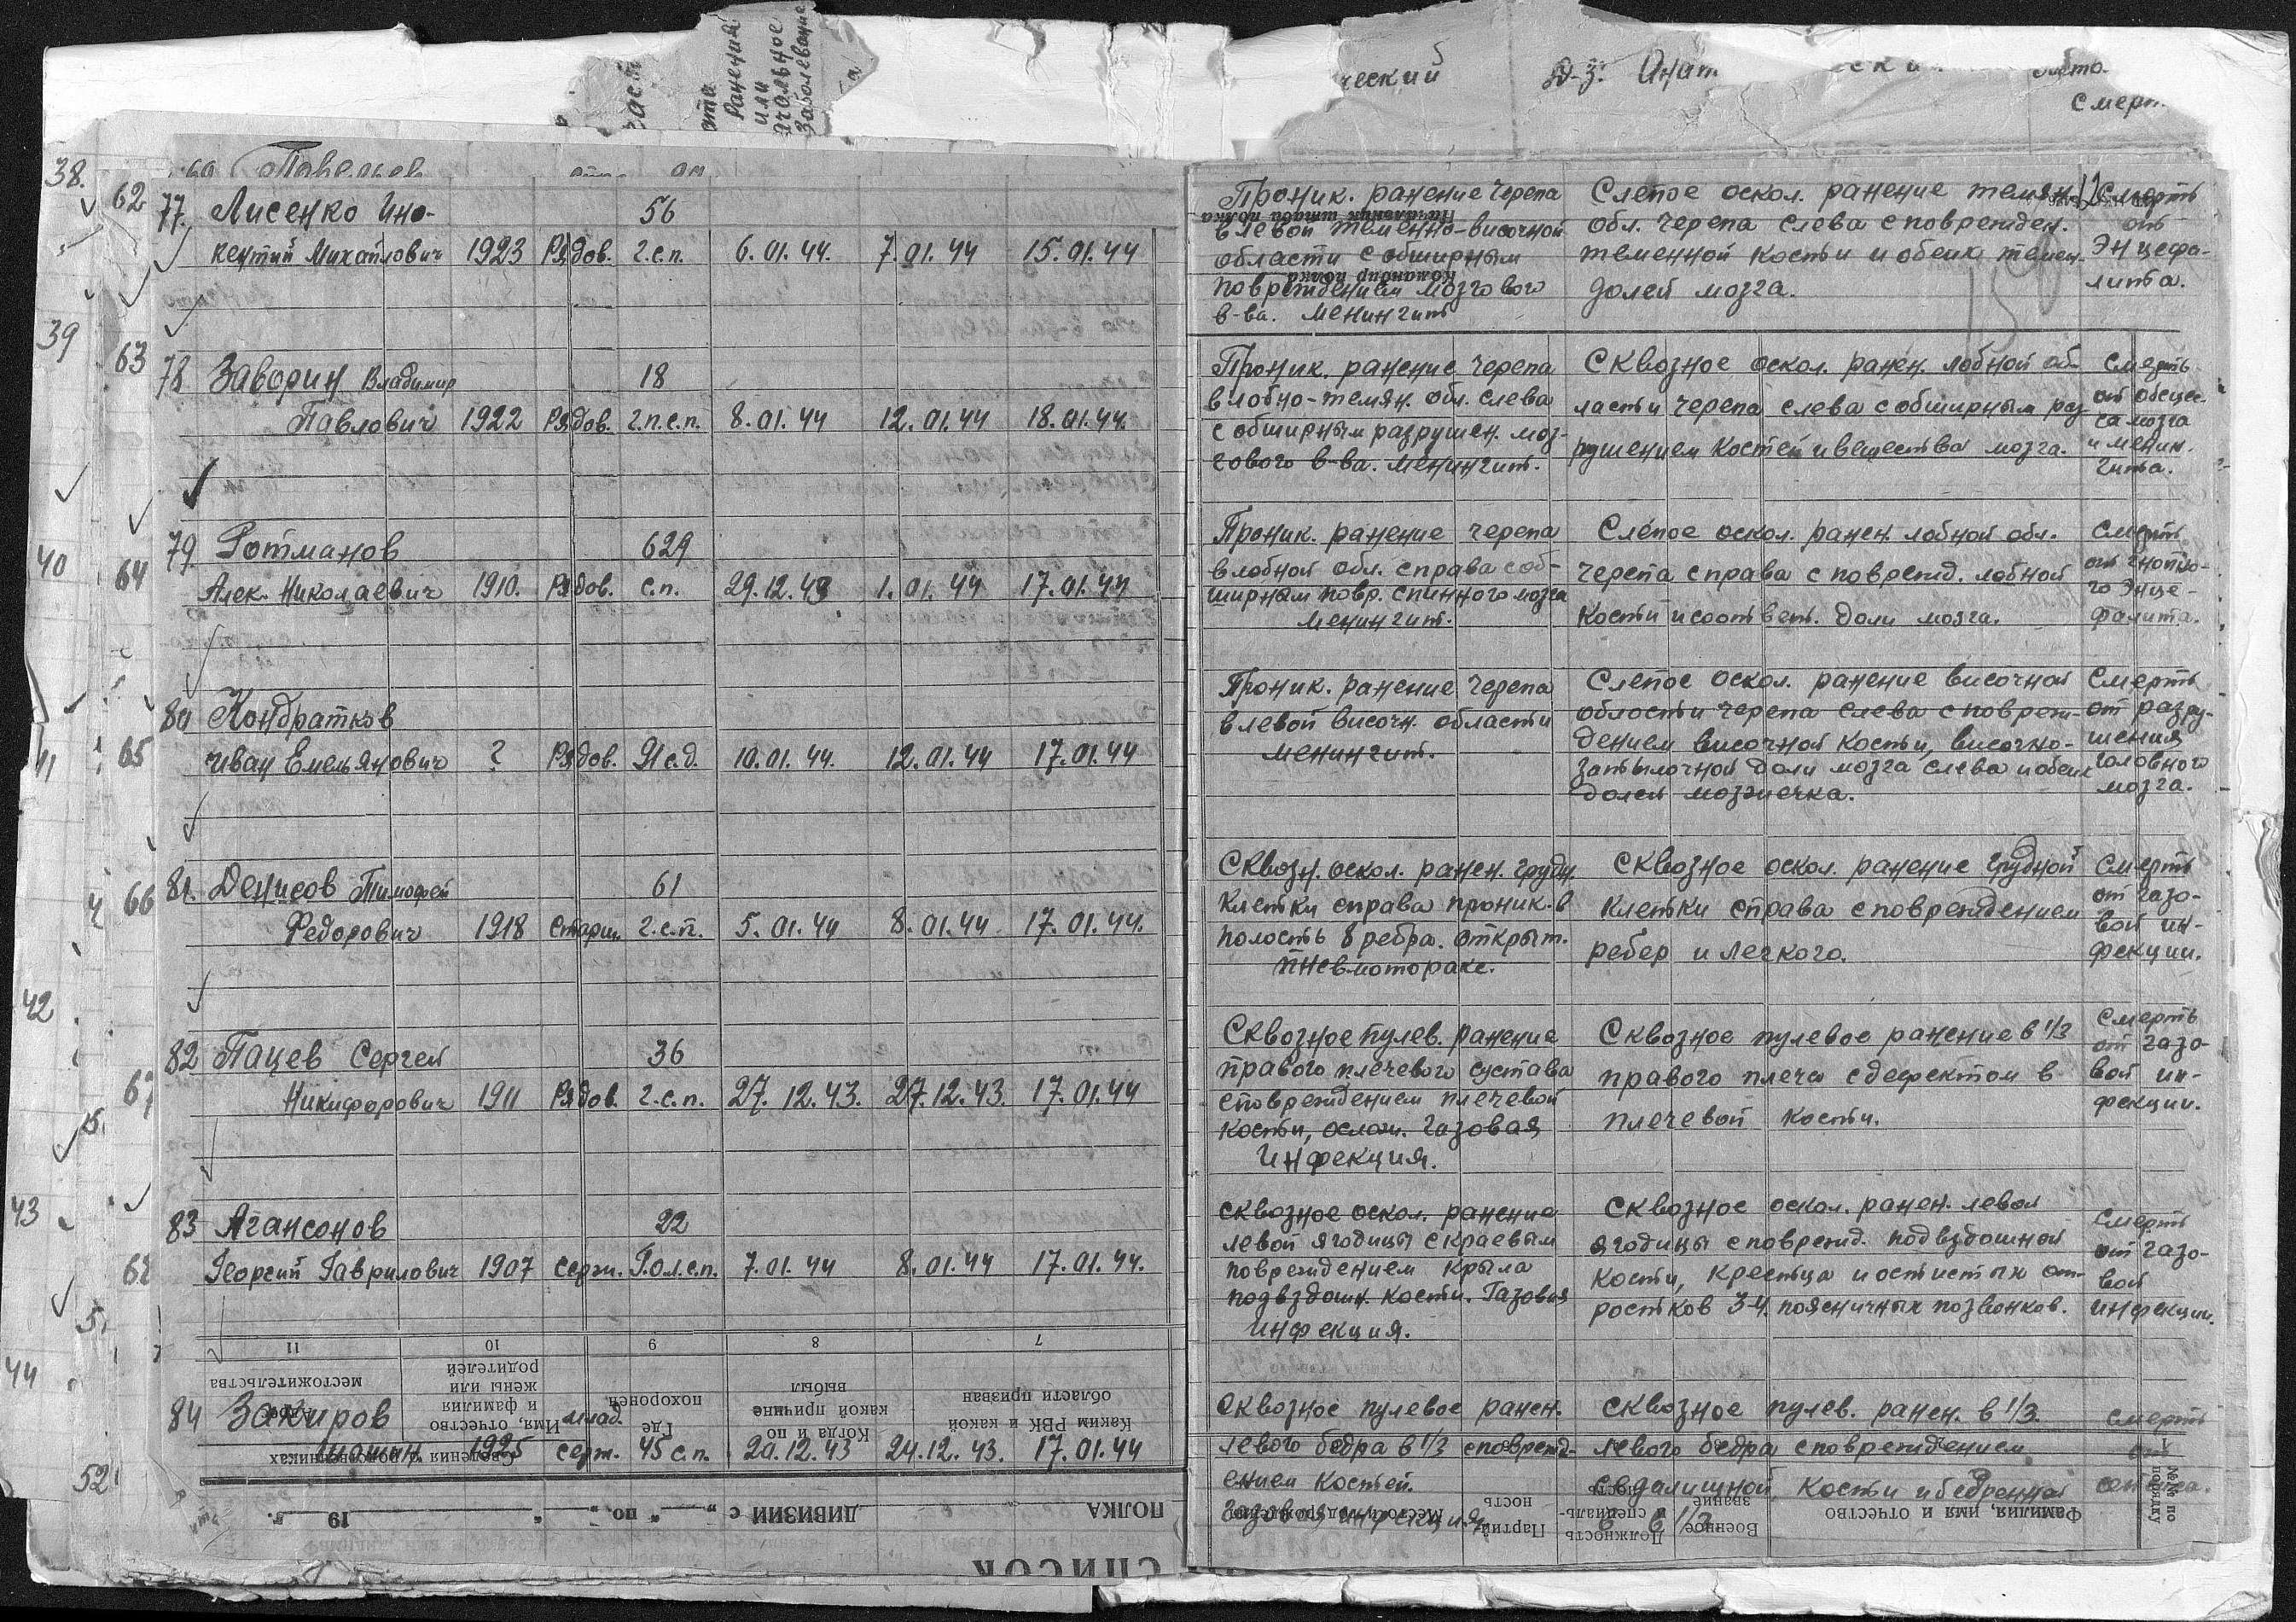 38.
62
39
63
40
64
65
66
42
43
44
52
ческий
Д-з:
Смерт
Ранений
или
Заболевание
77. Лисенко Ино-
56
кентий Михайлович 1923 Рядов. г.с.п. 6.01.44. 7.01.44 15.01.44
Проник. ранение черепа
в левой теменно-височной
области с обширным
повреждением мозгового
в-ва. Менингит
Слепое оскол. ранение темян.
обл. черепа слева с поврежден.
теменной кости и обеих темен.
долей мозга.
Смерть
от
Энцефа-
лита.
78 Заворин Владимир
18
Павлович 1922 Рядов. г.п.с.п. 8.01.44 12.01.44 18.01.44.
Проник. ранение черепа
в лобно-темян. обл. слева
с обширным разрушен. моз-
гового в-ва. Менингит.
Сквозное оскол. ранен. лобной об-
ласти черепа слева с обширным раз-
рушением костей и вещества мозга.
Смерть
от абсцес-
са мозга
и менин-
гита.
79. Ротманов
629
Алек. Николаевич 1910. Рядов. с.п. 29.12.43 1.01.44 17.01.44
Проник. ранение черепа
в лобной обл. справа с об-
ширным повр. спинного мозга
Менингит.
Слепое оскол. ранен. лобной обл.
черепа справа с поврежд. лобной
кости и соответ. доли мозга.
Смерть
от гнойно-
го Энце-
фалита.
80 Кондратков
Иван Емельянович ? Рядов. 91 с.д. 10.01.44. 12.01.44 17.01.44
Проник. ранение черепа
в левой височн. области
Менингит.
Слепое оскол. ранение височной
области черепа слева с повреж-
дением височной кости, височно-
затылочной доли мозга слева и обеих
долей мозжечка.
Смерть
от разру-
шения
головного
мозга.
81. Денисов Тимофей
61
Федорович 1918 Старш. г.с.п. 5.01.44 8.01.44 17.01.44.
Сквозн. оскол. ранен. грудн.
клетки справа проник. в
полость 8 ребра. открыт.
пневмоторакс.
Сквозное оскол. ранение грудной
клетки справа с повреждением
ребер и легкого.
Смерть
от газо-
вой ин-
фекции.
82 Пацев Сергей
36
Никифорович 1911 Рядов. г.с.п. 27.12.43. 27.12.43. 17.01.44
Сквозное пулев. ранение
правого плечевого сустава
с повреждением плечевой
кости, ослож. газовая
инфекция.
Сквозное пулевое ранение в 1/3
правого плеча с дефектом в
плечевой кости.
Смерть
от газо-
вой ин-
фекции.
83 Агансонов
22
Георгий Гаврилович 1907 Серж. 7.01.44 8.01.44 17.01.44.
Сквозное оскол. ранение
левой ягодицы с краевым
повреждением крыла
подвздошн. кости. Газовая
инфекция.
Сквозное оскол. ранен. левой
ягодицы с поврежд. подвздошной
кости, крестца и остистых от-
ростков 3-4. поясничных позвонков.
Смерть
от газо-
вой
инфекции.
84 Закиров
млад.
1925 серж. 45 с.п. 20.12.43 24.12.43. 17.01.44
Сквозное пулевое ранен.
левого бедра в 1/3 с поврежд-
ением костей.
Газовая инфекция
Сквозное пулев. ранен. в 1/3.
левого бедра с повреждением
седалищной кости и бедренной
в в 1/3
Смерть
от
сепсиса.
Начальник штаба полка
Командир полка
СПИСОК
ПОЛКА ДИВИЗИИ с „ “ по „ “ 19 г.
№№ по порядку
Фамилия, имя и отчество
Военное звание
Должность и специаль-ность
Партий ность
Место и год рождения
Каким РВК и какой области призван
Когда и по какой причине выбыл
Где похоронен
Сведения о родственниках
Имя, отчество и фамилия жены или родителей
местожительства
7 8 9 10 11